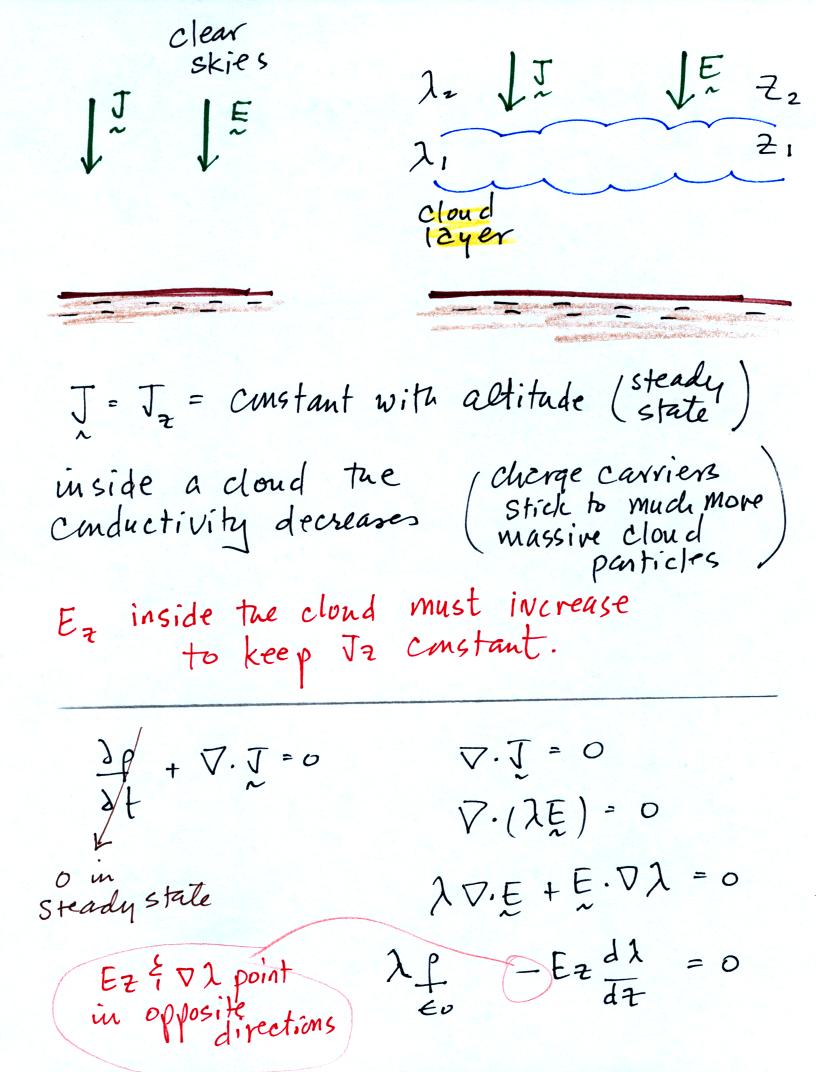 clear
skies
J
E
λ₂
J
E
Z₂
λ₁
Z₁
cloud
layer
J = J_z = constant with altitude (steady state)
inside a cloud the
conductivity decreases
(charge carriers
stick to much more
massive cloud
particles)
E_z inside the cloud must increase
to keep J_z constant.
∂ρ/∂t + ∇·J = 0
0 in
steady state
∇·J = 0
∇·(λE) = 0
λ∇·E + E·∇λ = 0
λ ρ/ϵ₀ − E_z dλ/dz = 0
E_z & ∇λ point
in opposite
directions